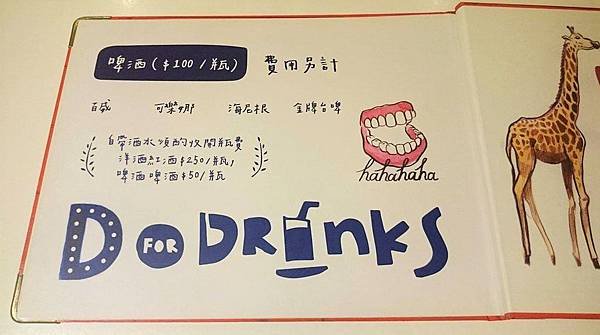 啤酒($100/瓶) 費用另計
百威 可樂娜 海尼根 金牌台啤
自帶酒水須酌收開瓶費
洋酒紅酒$250/瓶,
啤酒啤酒$50/瓶
hahahaha
D FOR DRINKS